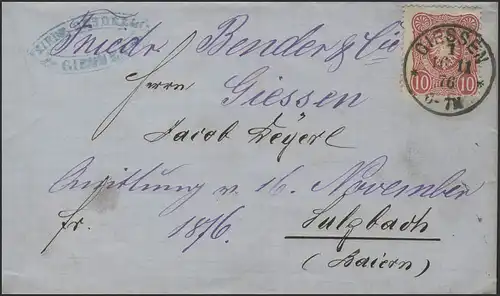 GIESSEN
1
16 11
76
6-7N
10 10
Friedr. Bender & Cie
Giessen
Herrn
Jacob Deyerl
Quittung v. 16. November
fr. 1876.
Sulzbach
(Baiern)